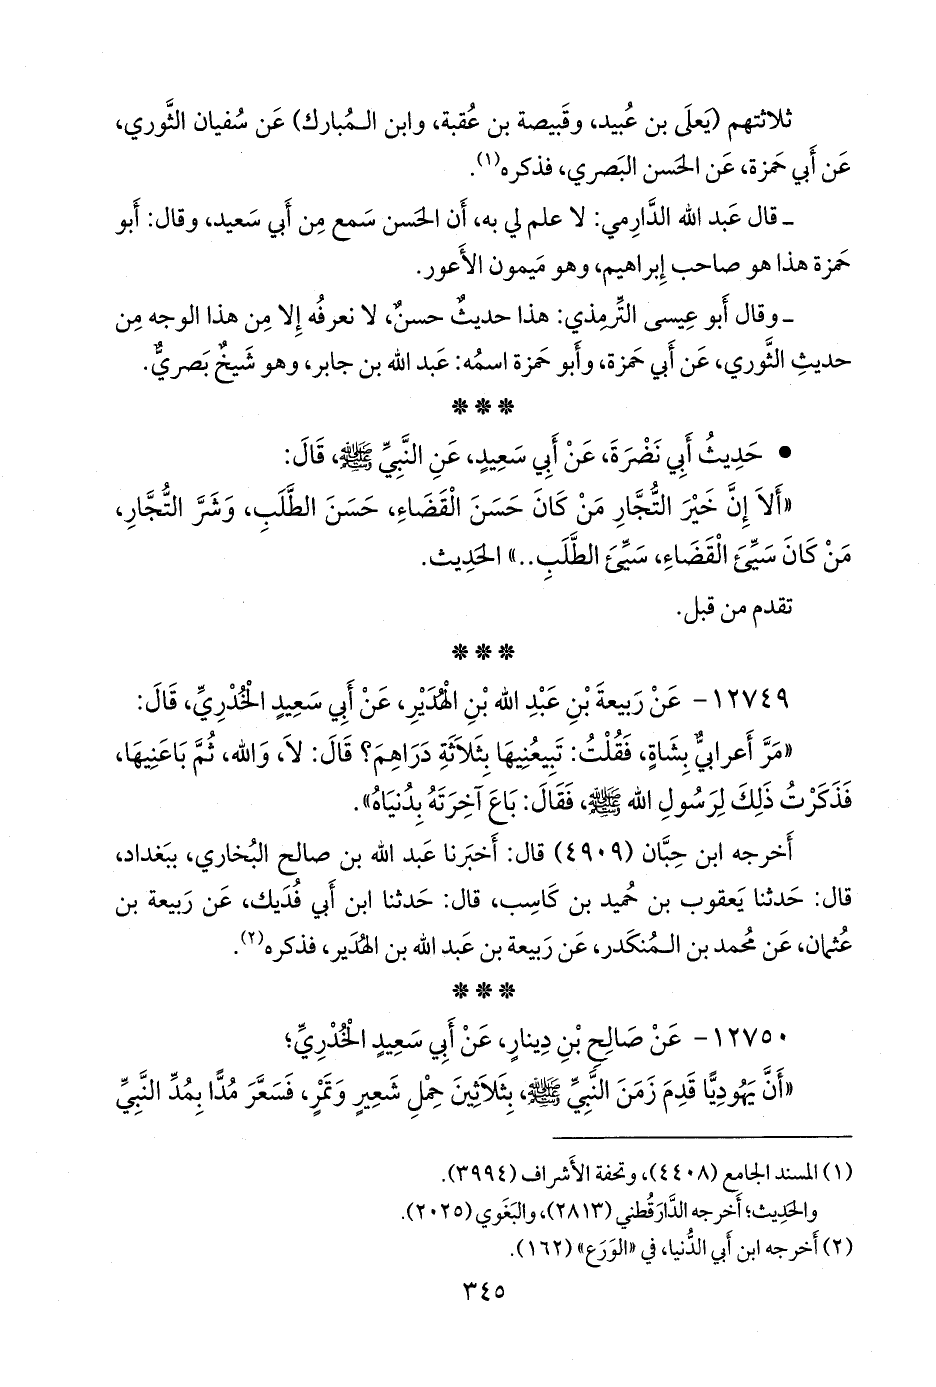 ثلاثتهم (يَعلَى بن عُبيد، وقَبيصة بن عُقبة، وابن الـمُبارك) عَن سُفيان الثَّوري،
عَن أَبي حَمزة، عَن الحَسن البَصري، فذكره(١).
ـ قال عَبد الله الدَّارِمي: لا علم لي به، أَن الحَسن سَمع مِن أَبي سَعيد، وقال: أَبو
حَمزة هذا هو صاحب إِبراهيم، وهو مَيمون الأَعور.
ـ وقال أَبو عِيسى التِّرمِذي: هذا حديثٌ حسنٌ، لا نعرفُه إِلا مِن هذا الوجه مِن
حديثِ الثَّوري، عَن أَبي حَمزة، وأَبو حَمزة اسمُه: عَبد الله بن جابر، وهو شَيخٌ بَصريٌّ.
***
• حَدِيثُ أَبِي نَضْرَةَ، عَنْ أَبِي سَعِيدٍ، عَنِ النَّبِيِّ ﷺ، قَالَ:
«أَلاَ إِنَّ خَيْرَ التُّجَّارِ مَنْ كَانَ حَسَنَ الْقَضَاءِ، حَسَنَ الطَّلَبِ، وَشَرَّ التُّجَّارِ،
مَنْ كَانَ سَيِّئَ الْقَضَاءِ، سَيِّئَ الطَّلَبِ..» الحَدِيث.
تقدم من قبل.
***
١٢٧٤٩- عَنْ رَبِيعَةَ بْنِ عَبْدِ الله بْنِ الْهُدَيْرِ، عَنْ أَبِي سَعِيدٍ الْخُدْرِيِّ، قَالَ:
«مَرَّ أَعرابيٌّ بِشَاةٍ، فَقُلْتُ: تَبِيعُنِيهَا بِثَلاَثَةِ دَرَاهِمَ؟ قَالَ: لاَ، وَالله، ثُمَّ بَاعَنِيهَا،
فَذَكَرْتُ ذَلِكَ لِرَسُولِ الله ﷺ، فَقَالَ: بَاعَ آخِرَتَهُ بِدُنيَاهُ».
أَخرجه ابن حِبَّان (٤٩٠٩) قال: أَخبَرنا عَبد الله بن صالح البُخاري، ببَغداد،
قال: حَدثنا يَعقوب بن حُميد بن كَاسِب، قال: حَدثنا ابن أَبي فُدَيك، عَن رَبيعة بن
عُثمان، عَن مُحمد بن الـمُنكَدر، عَن رَبيعة بن عَبد الله بن الهُدَير، فذكره(٢).
***
١٢٧٥٠- عَنْ صَالِحِ بْنِ دِينارٍ، عَنْ أَبِي سَعِيدٍ الْخُدْرِيِّ؛
«أَنَّ يَهُودِيًّا قَدِمَ زَمَنَ النَّبِيِّ ﷺ، بِثَلاَثِينَ حِمْلِ شَعِيرٍ وَتَمْرٍ، فَسَعَّرَ مُدًّا بِمُدِّ النَّبِيِّ
(١) المسند الجامع (٤٤٠٨)، وتحفة الأَشراف (٣٩٩٤).
والحَدِيث؛ أَخرجه الدَّارَقُطني (٢٨١٣)، والبَغَوي (٢٠٢٥).
(٢) أَخرجه ابن أَبي الدُّنيا، في «الوَرَع» (١٦٢).
٣٤٥